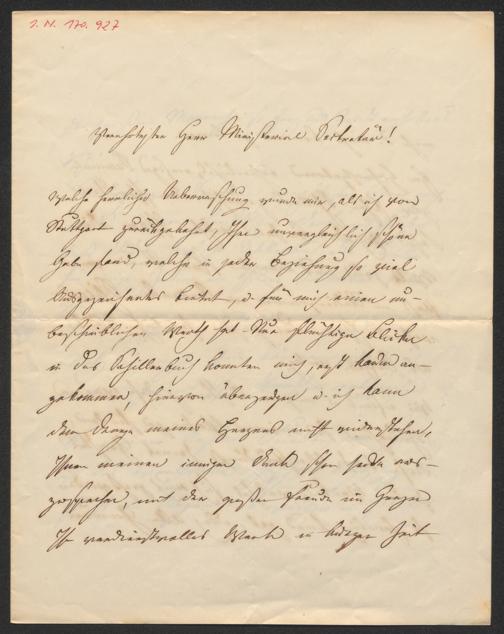 I. N. 170.927
Verehrtester Herr Ministerial Secretär!
Welche herrliche Ueberraschung wurde mir, als ich von
Stuttgart zurückgekehrt, Ihre unvergleichlich schöne
Gabe fand, welche in jeder Beziehung so viel
Ausgezeichnetes bietet, u. für mich einen un-
beschreiblichen Werth hat. Nur flüchtige Blicke
in das Schillerbuch konnten mich, erst kaum an-
gekommen, hievon überzeugen u. ich kann
dem Drange meines Herzens nicht widerstehen,
Ihnen meinen innigen Dank schon heute aus-
zusprechen, mit der großen Freude im Herzen
Ihr verdienstvolles Werk in kurzer Zeit